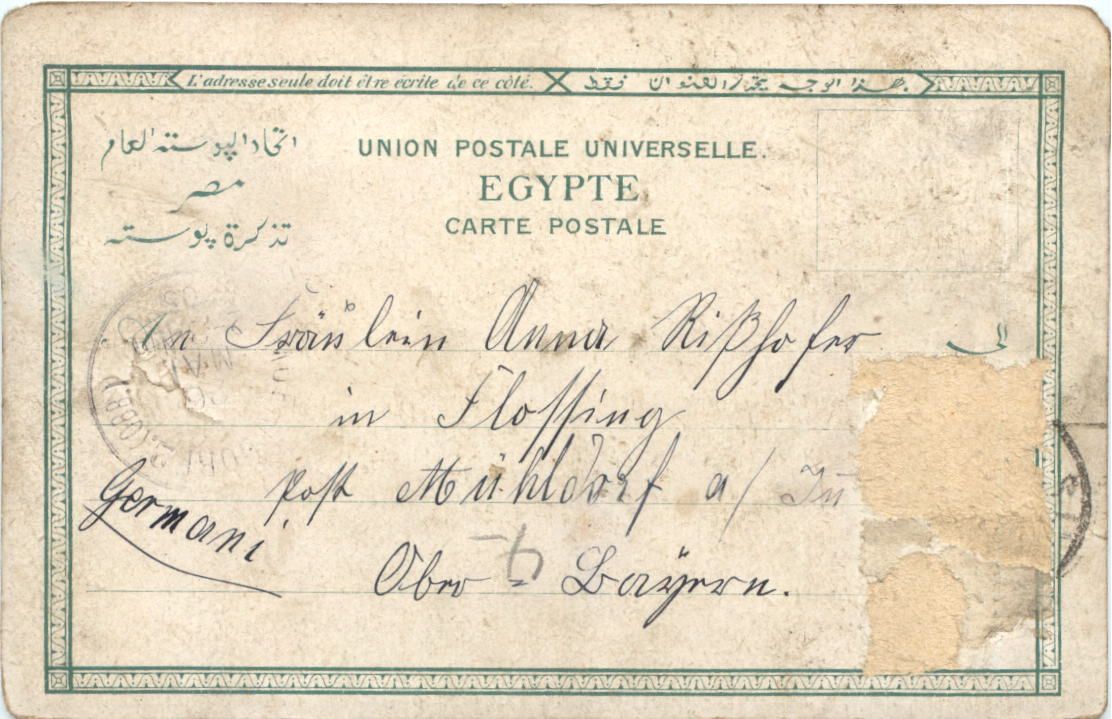 L'adresse seule doit être écrite de ce côté.
هذا الوجه يختص بالعنوان فقط
اتحاد البوسته العام
مصر
تذكرة بوسته
UNION POSTALE UNIVERSELLE.
EGYPTE
CARTE POSTALE
An Fräulein Anna Rißhofer
الى
in Flossing
Post Mühldorf a/ In
Germani
Ober = Bayern.